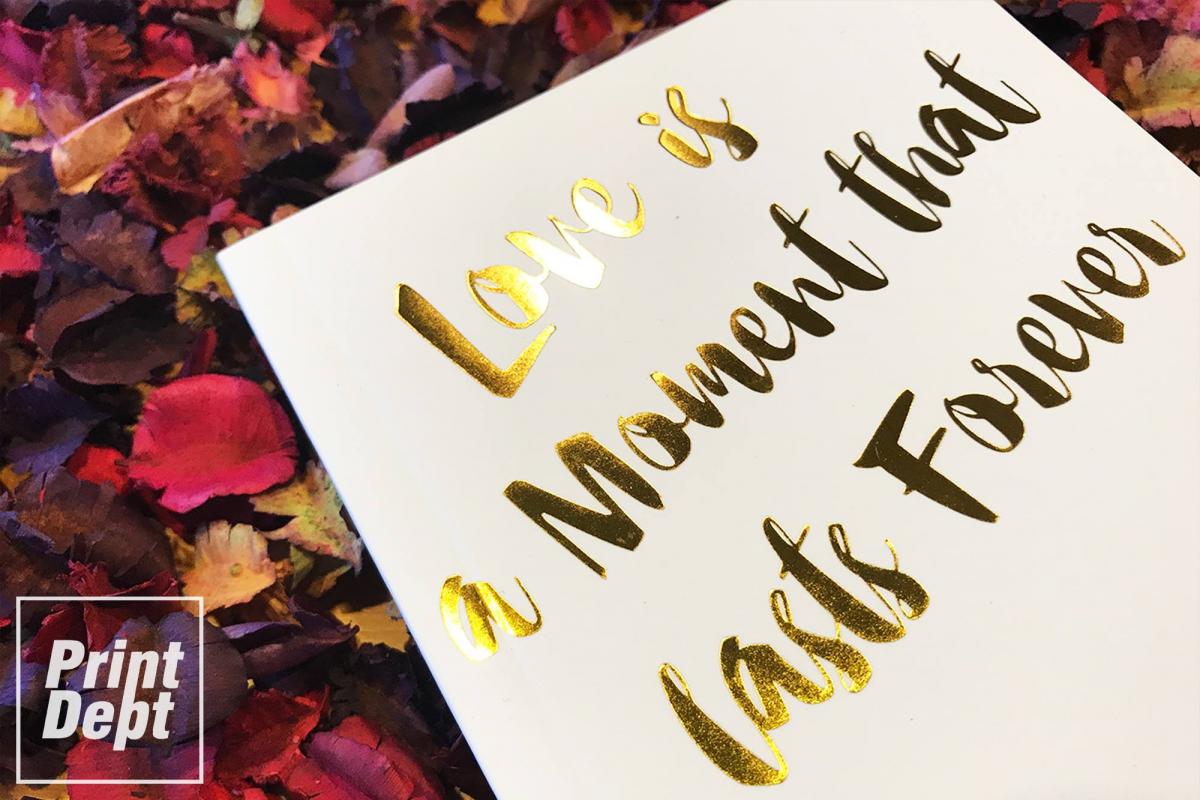 Love is
a Moment that
lasts Forever
Print
Dept